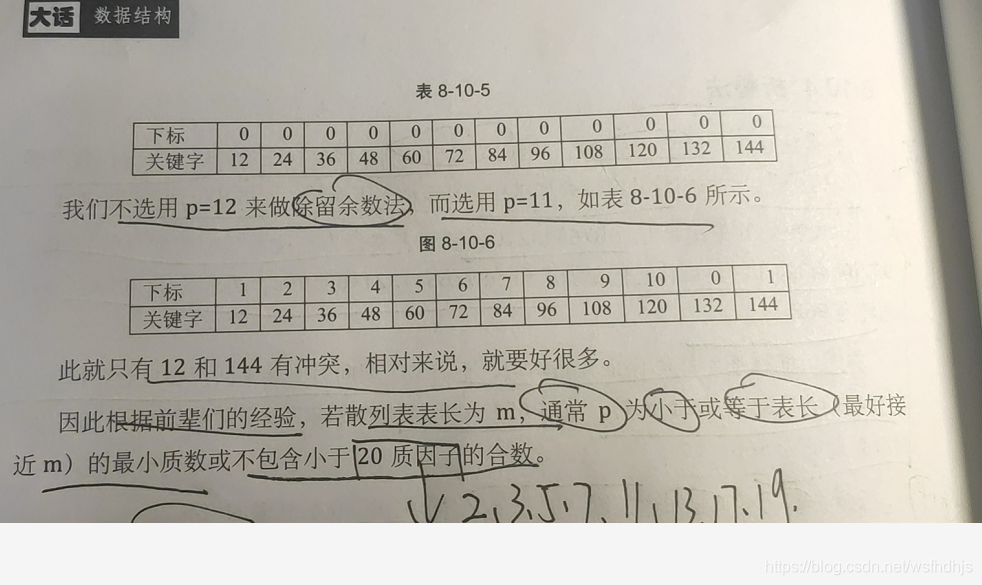 大话 数据结构
表 8-10-5
下标 0 0 0 0 0 0 0 0 0 0 0 0
关键字 12 24 36 48 60 72 84 96 108 120 132 144
我们不选用 p=12 来做除留余数法，而选用 p=11，如表 8-10-6 所示。
图 8-10-6
下标 1 2 3 4 5 6 7 8 9 10 0 1
关键字 12 24 36 48 60 72 84 96 108 120 132 144
此就只有 12 和 144 有冲突，相对来说，就要好很多。
因此根据前辈们的经验，若散列表表长为 m，通常 p 为小于或等于表长（最好接
近 m）的最小质数或不包含小于 20 质因子的合数。
2、3、5、7、11、13、17、19.
https://blog.csdn.net/wsfhdhjs